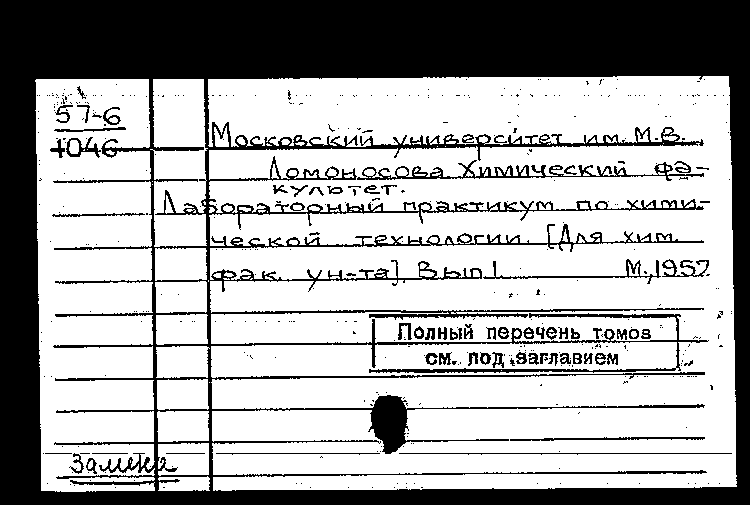 57-6
1046
Московский университет им. М.В.
Ломоносова Химический фа-
культет.
Лабораторный практикум по хими-
ческой технологии. [Для хим.
фак. ун-та]. Вып 1 М., 1957
Полный перечень томов
см. под заглавием
Замена